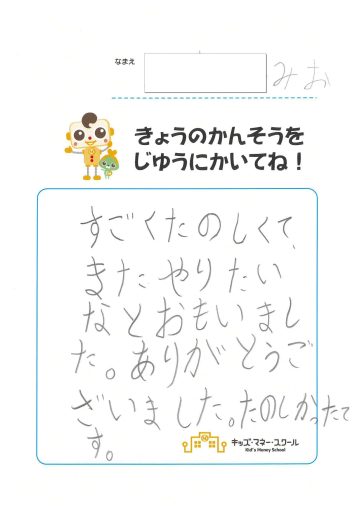 なまえ
みお
きょうのかんそうを
じゆうにかいてね！
すごくたのしくて、
またやりたい
なとおもいまし
た。ありがとうご
ざいました。たのしかったて
す。
キッズ・マネー・スクール
Kid's Money School